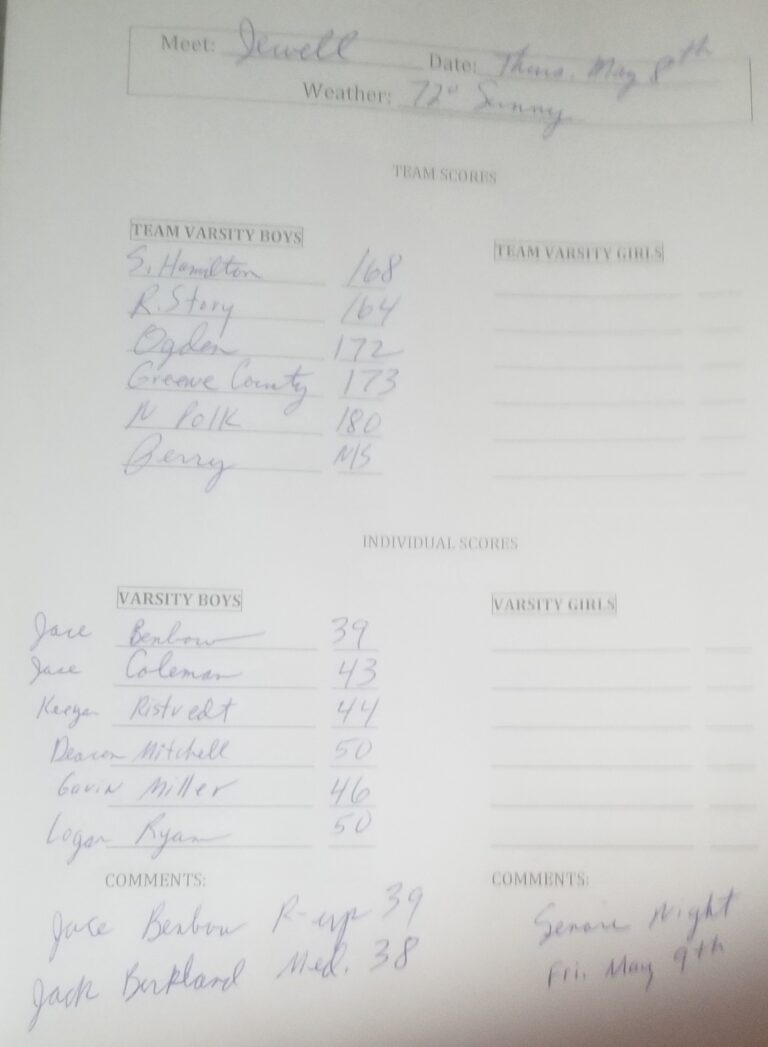 Meet: Jewell Date: Thurs. May 8th
Weather: 72° Sunny
TEAM SCORES
TEAM VARSITY BOYS TEAM VARSITY GIRLS
S. Hamilton 168
R. Story 164
Ogden 172
Greene County 173
N Polk 180
Perry N/S
INDIVIDUAL SCORES
VARSITY BOYS VARSITY GIRLS
Jace Benbow 39
Jase Coleman 43
Keegan Ristvedt 44
Deacon Mitchell 50
Gavin Miller 46
Logan Ryan 50
COMMENTS: COMMENTS:
Jace Benbow R-up 39 Senior Night
Jack Berkland Med. 38 Fri. May 9th